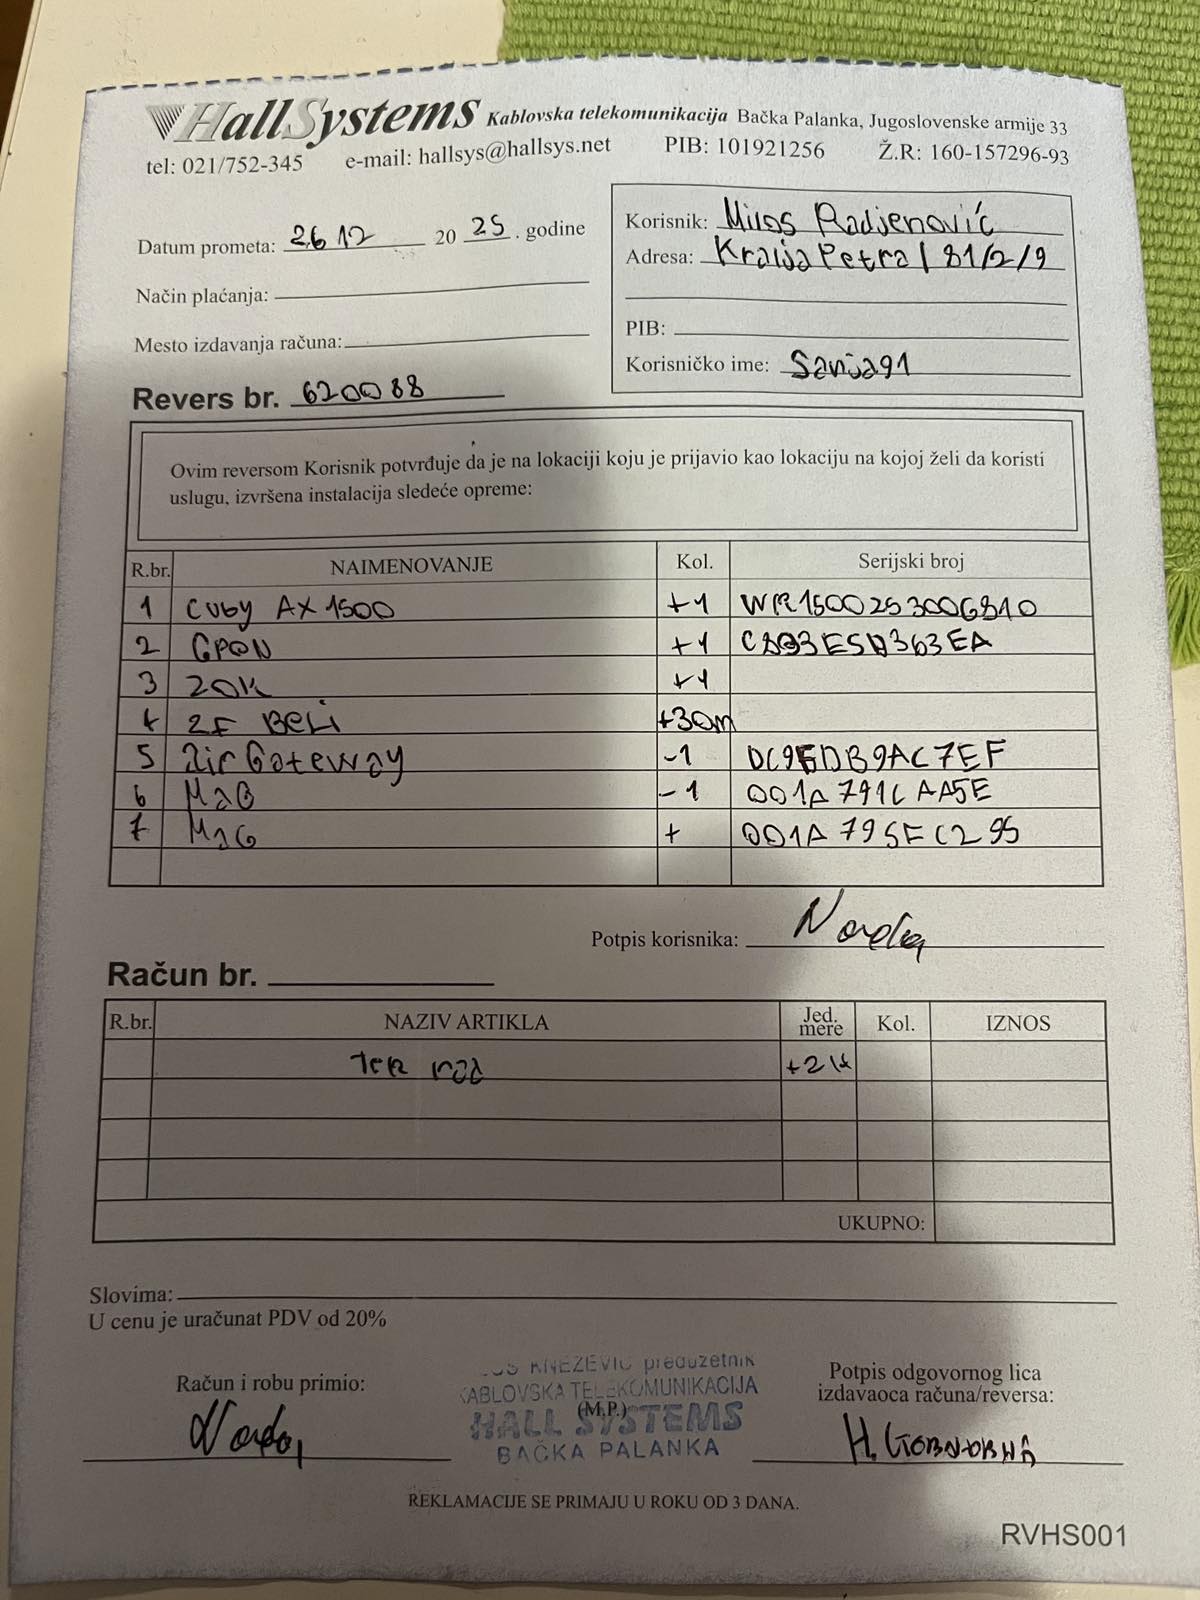 HallSystems Kablovska telekomunikacija Bačka Palanka, Jugoslovenske armije 33
tel: 021/752-345 e-mail: hallsys@hallsys.net PIB: 101921256 Ž.R: 160-157296-93
Datum prometa: 26 12 20 25. godine
Način plaćanja:
Mesto izdavanja računa:
Revers br. 620088
Korisnik: Milos Radjenović
Adresa: Kralja Petra I 81/2/9
PIB:
Korisničko ime: Sanja91
Ovim reversom Korisnik potvrđuje da je na lokaciji koju je prijavio kao lokaciju na kojoj želi da koristi
uslugu, izvršena instalacija sledeće opreme:
R.br. NAIMENOVANJE Kol. Serijski broj
1 Cudy AX 1500 +1 WR1500253006810
2 GPON +1
3 20K +1
4 2F BELI +30m
5 AirGateway -1 DC9FDB9AC7EF
6 MAG -1 001A791CAA5E
7 MAG + 001A795EC295
Potpis korisnika:
Račun br.
R.br. NAZIV ARTIKLA Jed. mere Kol. IZNOS
+2H
UKUPNO:
Slovima:
U cenu je uračunat PDV od 20%
Račun i robu primio:
KNEZEVIC preduzetnik
KABLOVSKA TELEKOMUNIKACIJA
(M.P.)
HALL SYSTEMS
BAČKA PALANKA
Potpis odgovornog lica
izdavaoca računa/reversa:
REKLAMACIJE SE PRIMAJU U ROKU OD 3 DANA.
RVHS001